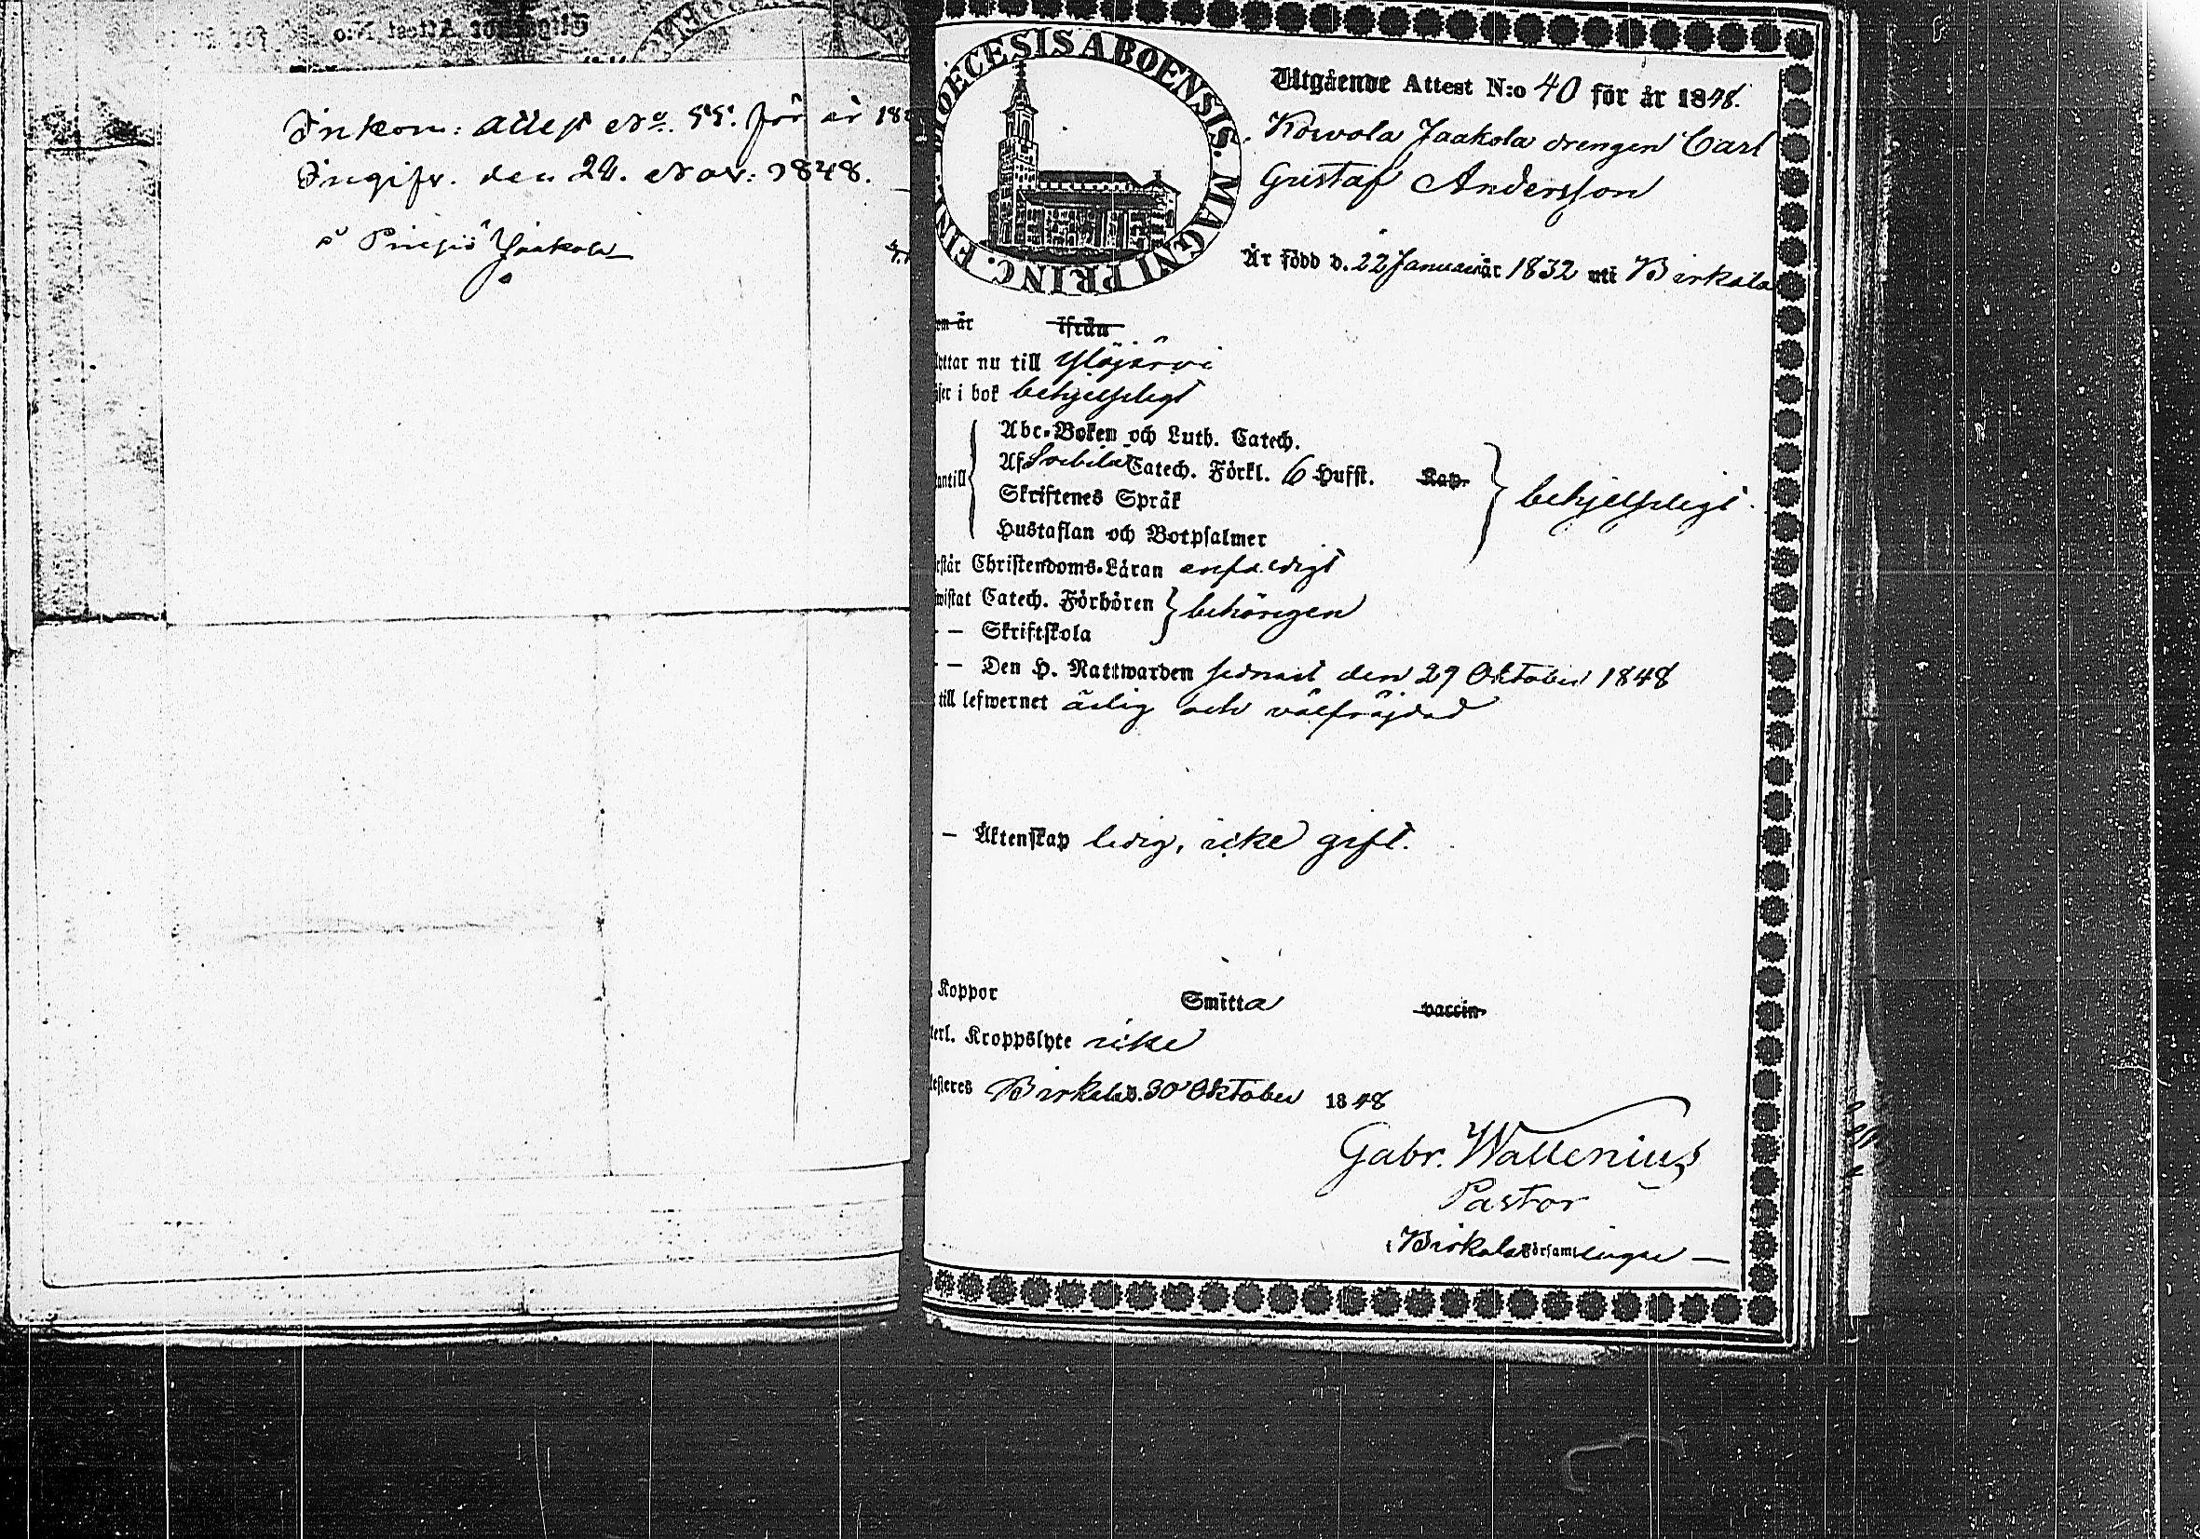 Inkom: attest No. 55. för år 18
Ingifv. den 24. Nov: 1848.
å Pinsiö Jaakola
DIOECESIS ABOENSIS. MAGNI PRINC. FIN
Utgående Attest N:o 40 för år 1848.
Korvola Jaakola drengen Carl
Gustaf Andersson
Är född d. 22 Januari år 1832 uti Birkala
em är ifrån
lyttar nu till Ylöjärvi
äser i bok behjelpeligt
Abc-Boken och Luth. Catech.
Af Svebilii Catech. Förkl. 6 Hufst. Kap.
antill behjelpeligt.
Skriftenes Språk
Hustaflan och Botpsalmer
rstår Christendoms-Läran enfaldigt
wistat Catech. Förhören behörigen
- – Skriftskola
- – Den H. Nattwarden sednast den 29 Oktober 1848
till lefwernet ärlig och välfräjdad
- – Äktenskap ledig, icke gift.
Koppor Smitta vaccin
terl. Kroppslyte icke
testeres Birkala d. 30 Oktober 1848
Gabr. Wallenius
Pastor
i Birkala Församlingar